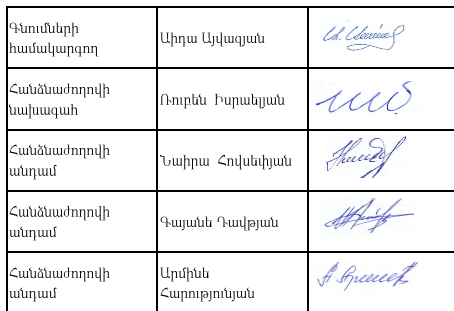 Գնումների
համակարգող
Աիդա Այվազյան
Հանձնաժողովի
նախագահ
Ռուբեն Իսրաելյան
Հանձնաժողովի
անդամ
Նաիրա Հովսեփյան
Հանձնաժողովի
անդամ
Գայանե Դավթյան
Հանձնաժողովի
անդամ
Արմինե
Հարությունյան